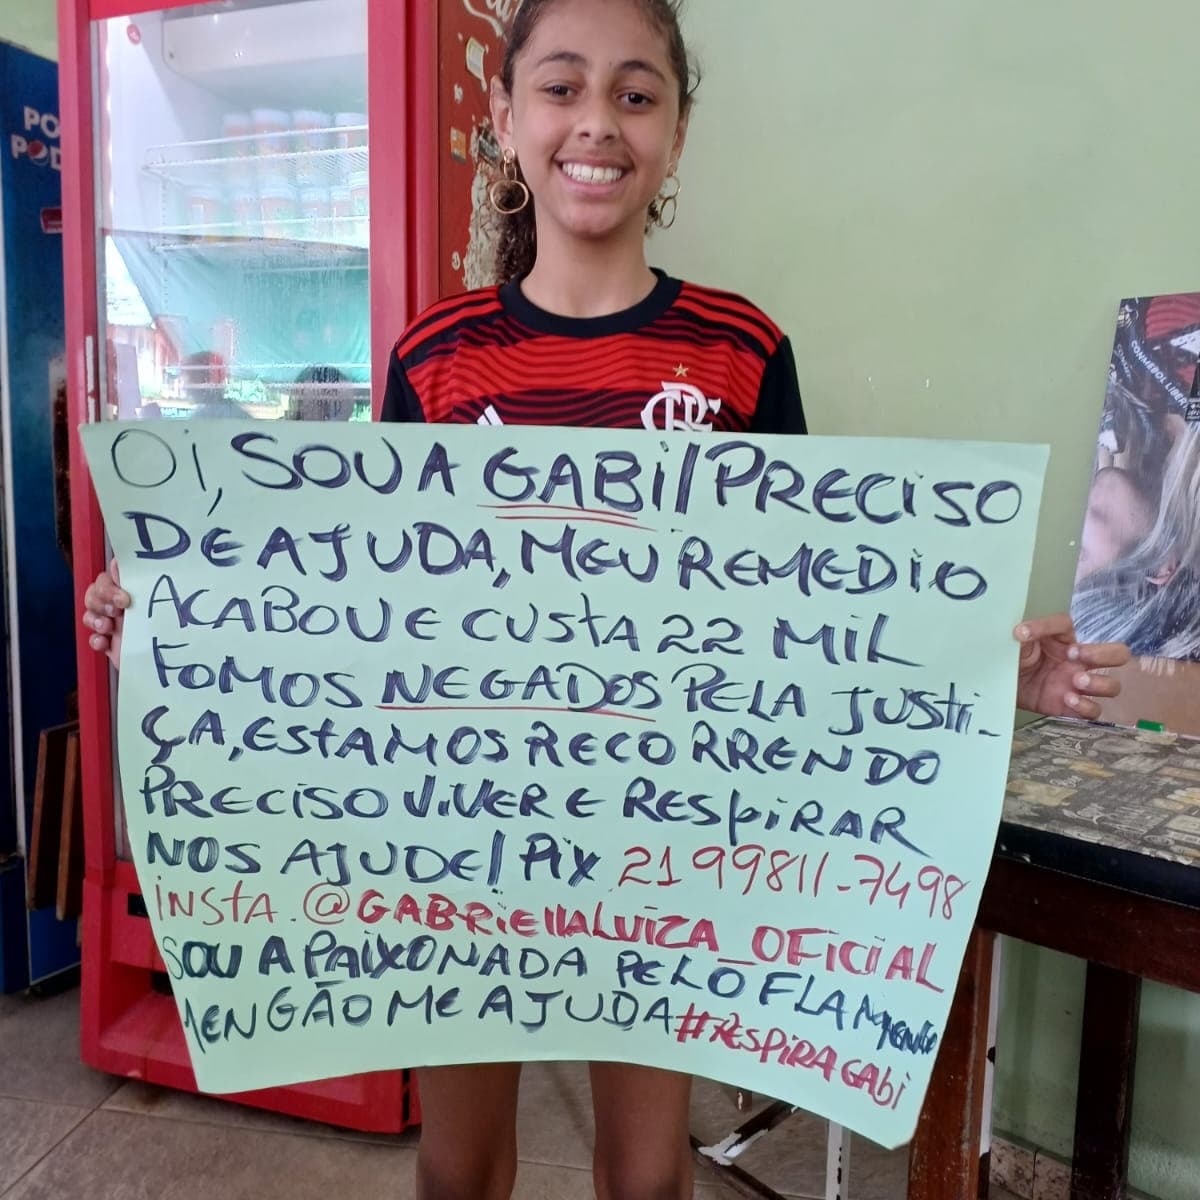 PO
POD
OI, SOU A GABI/PRECISO
DE AJUDA, MEU REMEDIO
ACABOU E CUSTA 22 MIL
FOMOS NEGADOS PELA JUSTI-
ÇA, ESTAMOS RECORRENDO
PRECISO VIVER E RESPIRAR
NOS AJUDE/ PIX 21 99811-7498
INSTA. @GABRIELLALUIZA_OFICIAL
SOU APAIXONADA PELO FLAMENGO
MENGÃO ME AJUDA #RESPIRAGABI
CRF
CONMEBOL LIBER